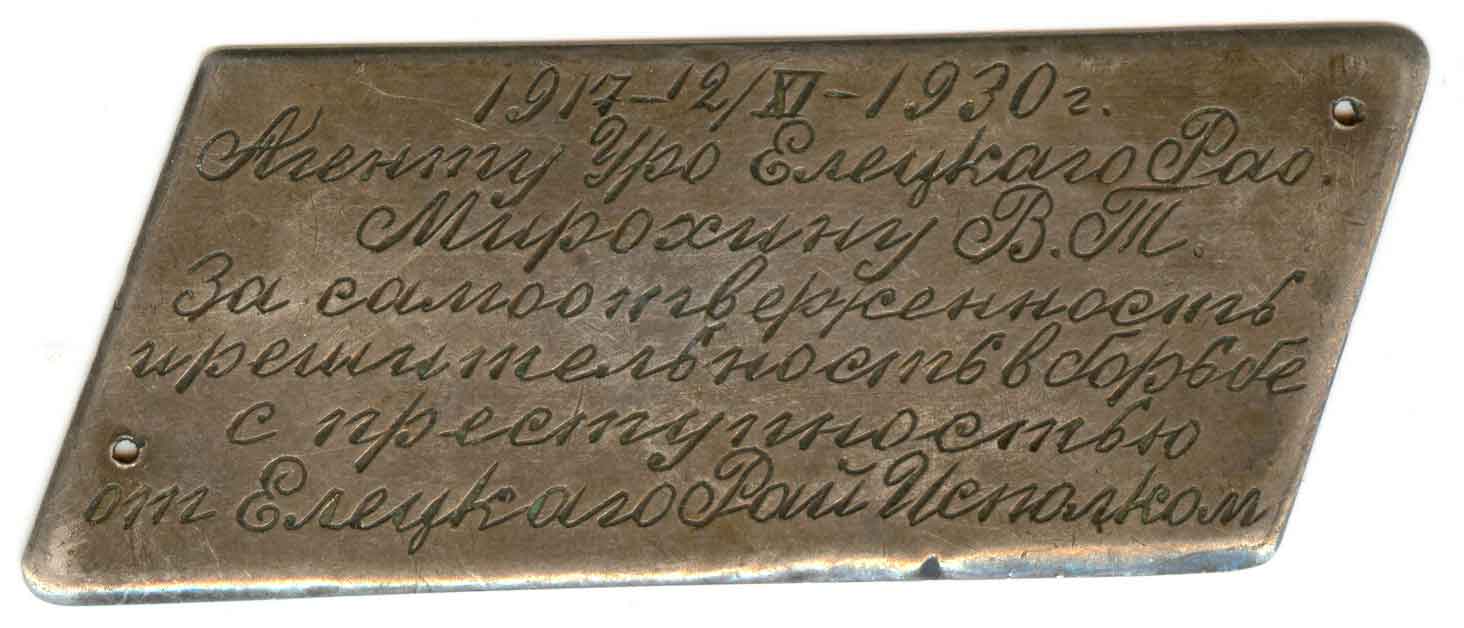 1917–12/XI–1930г.
Агенту Уро Елецкаго Рао
Мирохину В.Т.
За самоотверженность
ирешительность в борьбе
с преступностью
от Елецкаго Рай Исполком